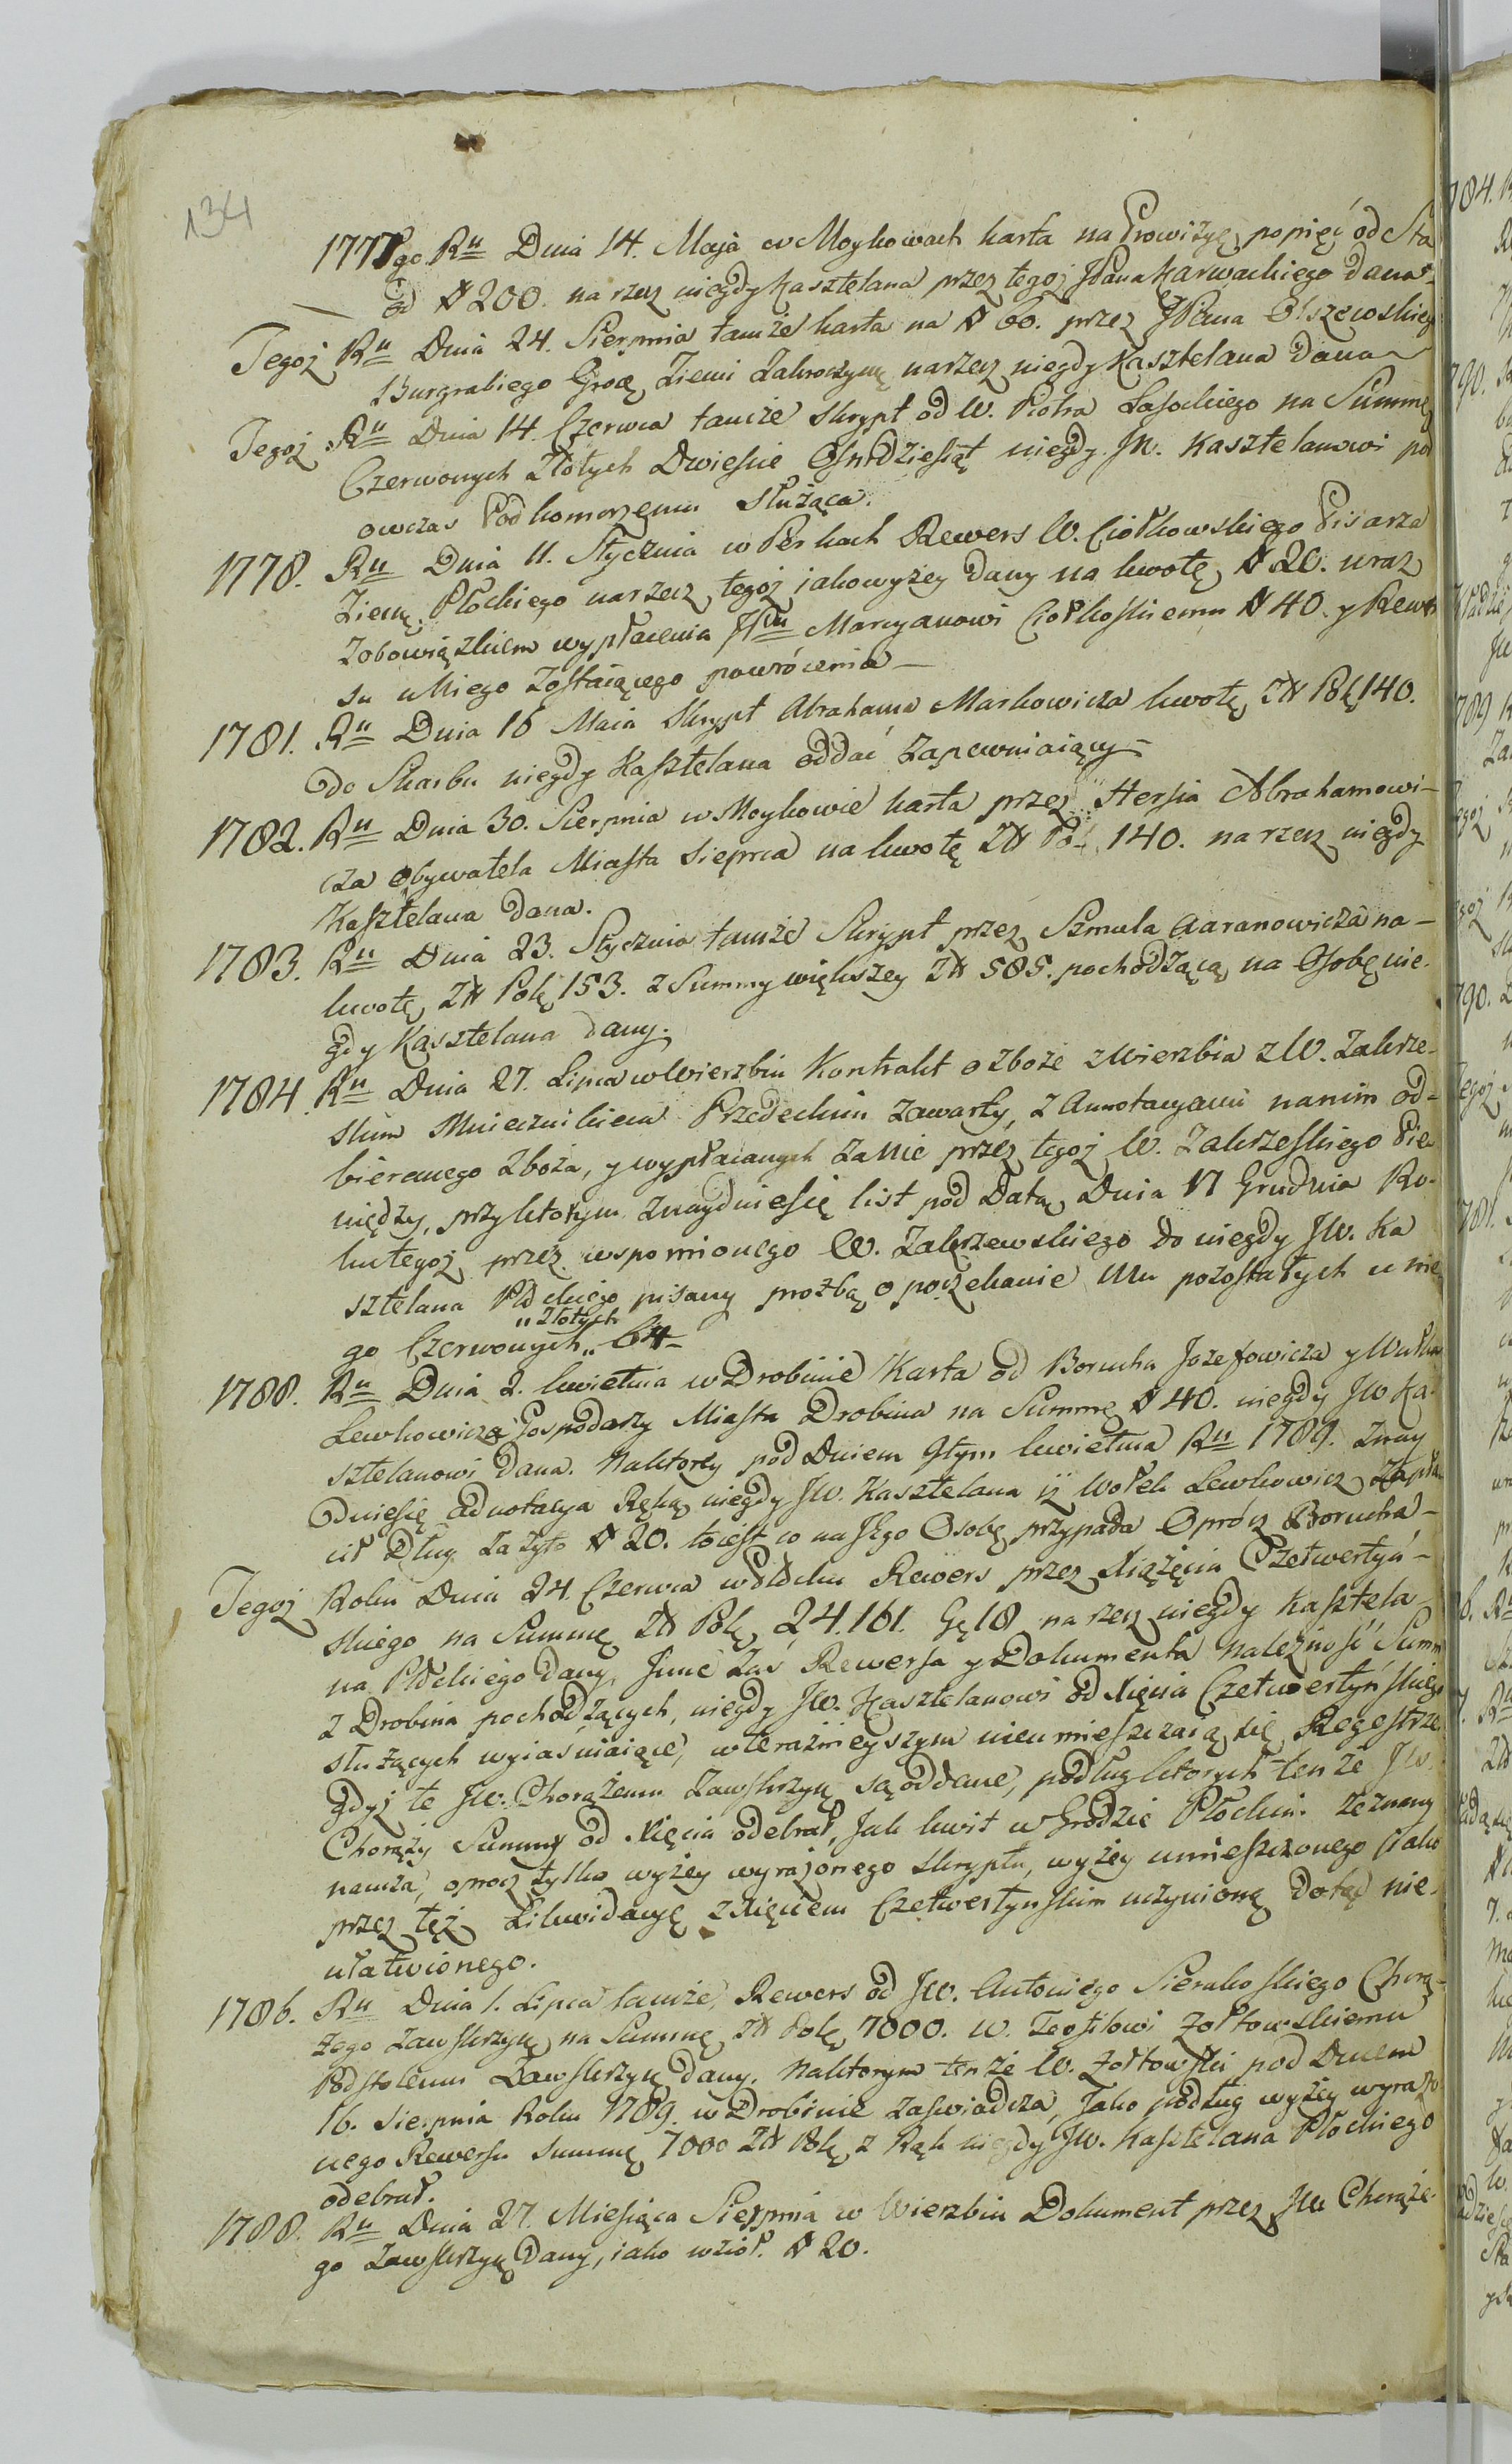 134
1777go Ru Dnia 14. Maja w Moykowach karta na Prowizyę popięć od Sta
od # 200. na rzecz niegdy Kasztelana przez tegoż JPana Karwackiego dana
Tegoż Ru Dnia 24. Sierpnia tamże karta na # 60. przez JPana Olszewskieg
Burgrabiego Grodz Ziemi Zakroczymę narzecz niegdy Kasztelana dana
Tegoż Ru Dnia 14. Czerwca tamże skrypt od W. Piotra Lasockiego na Summę
Czerwonych Złotych Dwieście Ośmdziesiąt niegdy JW. Kasztelanowi pod
owczas Podkomorzemu służąca.
1778. Ru Dnia 11. Stycznia w Perkach Rewers W. Ciołkowskiego Pisarza
Ziemę Płockiego narzecz tegoż jakowyżey dany na kwotę # 20. wraz
Zobowiązkiem wypłacenia JPu Marcyanowi Ciołkoskiemu # 40. y Rewer
su u Niego Zostaiącego powrócenia
1781. Ru Dnia 16 Maia Skrypt Abrahama Markowicza kwotę Zł Polę 140.
do Skarbu niegdy Kasztelana oddać Zapewniaiący
1782. Ru Dnia 30. Sierpnia w Moykowie karta przez Hersia Abrahamowi-
cza obywatela Miasta Sieprca na kwotę Zł Pol 140. na rzecz niegdy
Kasztelana dana.
1783. Ru Dnia 23. Stycznia tamże Skrypt przez Szmula Aaranowicza na-
kwotę Zł Polę 153. z Summy większey Zł 585. pochodzącą na Osobę nie-
gdy Kasztelana dany.
1784. Ru Dnia 27. Lipca w Wierzbiu Kontrakt o zboże z Wierzbia z W. Zakrze-
skim Miecznikiem Przedeckim zawarty, z Annotacyami nanim od-
bieranego zboża, y wypłacanych za nie przez tegoż W. Zakrzeskiego Pie-
niędzy, przyktorym znaydniesię list pod Datą Dnia 17 Grudnia Ro-
kutegoż przez wspomionego W. Zakrzewskiego do niegdy JW. Ka
sztelana Płckiego pisany prozbą o poczekanie Mu pozostałych u nie
go Czerwonych "Złotych" 64
1788. Ru Dnia 2. kwietnia w Drobinie Karta od Borucha Jozefowicza y Wułka
Lewkowicza Gospodarzy Miasta Drobina na Summę # 40. niegdy JW Ka-
sztelanowi dana. Naktorey pod Dniem 9tym kwietnia Ru 1789. Znay
dniesię adnotacya Ręką niegdy JW. Kasztelana iż Wołek Lewkowicz Zapła
cił Dług za żyto # 20. toiest co na Jego Osobę przypada Oprócz Borucha
Tegoż Roku Dnia 24. Czerwca w Płcku Rewers przez Xiążęcia Czetwertyń-
skiego na Summę Zł Polę 24.161. Gę 18 na rzecz niegdy Kasztela-
na Płckiego dany, Inne Zas Rewersa y Dokumenta należność Summ
z Drobina pochodzących, niegdy JW. Kasztelanowi od Xięcia Czetwertyńskieg
służących wyiaśniaiące, w teraźnieyszym nieumieszczaią się Regestrze
gdyż te JW. Chorążemu Zawskrzyń są oddane, podług ktorych tenże JW.
Chorąży Summy od Xięcia odebrał, Jak kwit w Grodzie Płockim zeznany
naucza, oprocz tylko wyżey wyrażonego skryptu, wyżey umieszczonego Jako
przez tęż Likwidacyę z Xięciem Czetwertyńskim uczynioną dotąd nie-
ułatwionego.
1786. Ru Dnia 1. Lipca tamże, Rewers od JW. Antoniego Sierakoskiego Chorą-
żego Zawskrzyń na Summę Zł Polę 7000. W. Teofilowi Żołtowskiemu
Podstolemu Zawskrzyń dany. Naktorym tenże W. Żołtowski pod Dniem
16. Sierpnia Roku 1789. w Drobinie zaswiadcza, Jako podług wyżey wyrażo
nego Rewersu summę 7000 Zł Polę z Rąk niegdy JW. Kasztelana Płockiego
odebrał.
1788. Ru Dnia 27. Miesiąca Sierpnia w Wierzbiu Dokument przez JW Chorąże-
go Zawskrzyń Dany, iako wziół # 20.